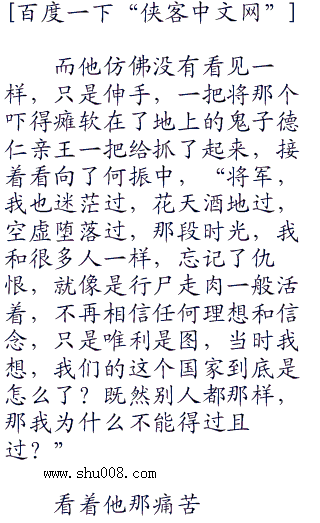 [百度一下“侠客中文网”]
而他仿佛没有看见一
样，只是伸手，一把将那个
吓得瘫软在了地上的鬼子德
仁亲王一把给抓了起来，接
着看向了何振中，“将军，
我也迷茫过，花天酒地过，
空虚堕落过，那段时光，我
和很多人一样，忘记了仇
恨，就像是行尸走肉一般活
着，不再相信任何理想和信
念，只是唯利是图，当时我
想，我们的这个国家到底是
怎么了？既然别人都那样，
那我为什么不能得过且
过？”
www.shu008.com
看着他那痛苦